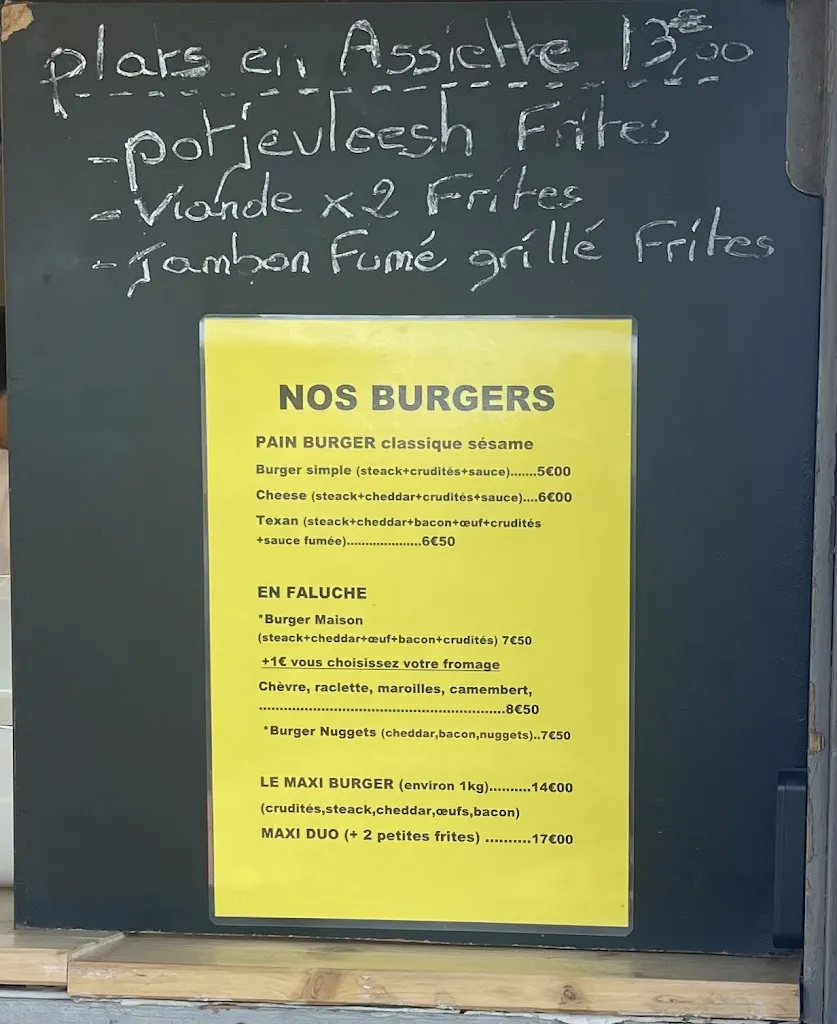 plats en Assiette 13€,00
- potjevleesh Frites
- Viande x2 Frites
- Jambon Fumé grillé Frites
NOS BURGERS
PAIN BURGER classique sésame
Burger simple (steack+crudités+sauce).......5€00
Cheese (steack+cheddar+crudités+sauce)....6€00
Texan (steack+cheddar+bacon+œuf+crudités
+sauce fumée)....................6€50
EN FALUCHE
*Burger Maison
(steack+cheddar+œuf+bacon+crudités) 7€50
+1€ vous choisissez votre fromage
Chèvre, raclette, maroilles, camembert,
..........................................................8€50
*Burger Nuggets (cheddar,bacon,nuggets)..7€50
LE MAXI BURGER (environ 1kg)..........14€00
(crudités,steack,cheddar,œufs,bacon)
MAXI DUO (+ 2 petites frites) ..........17€00